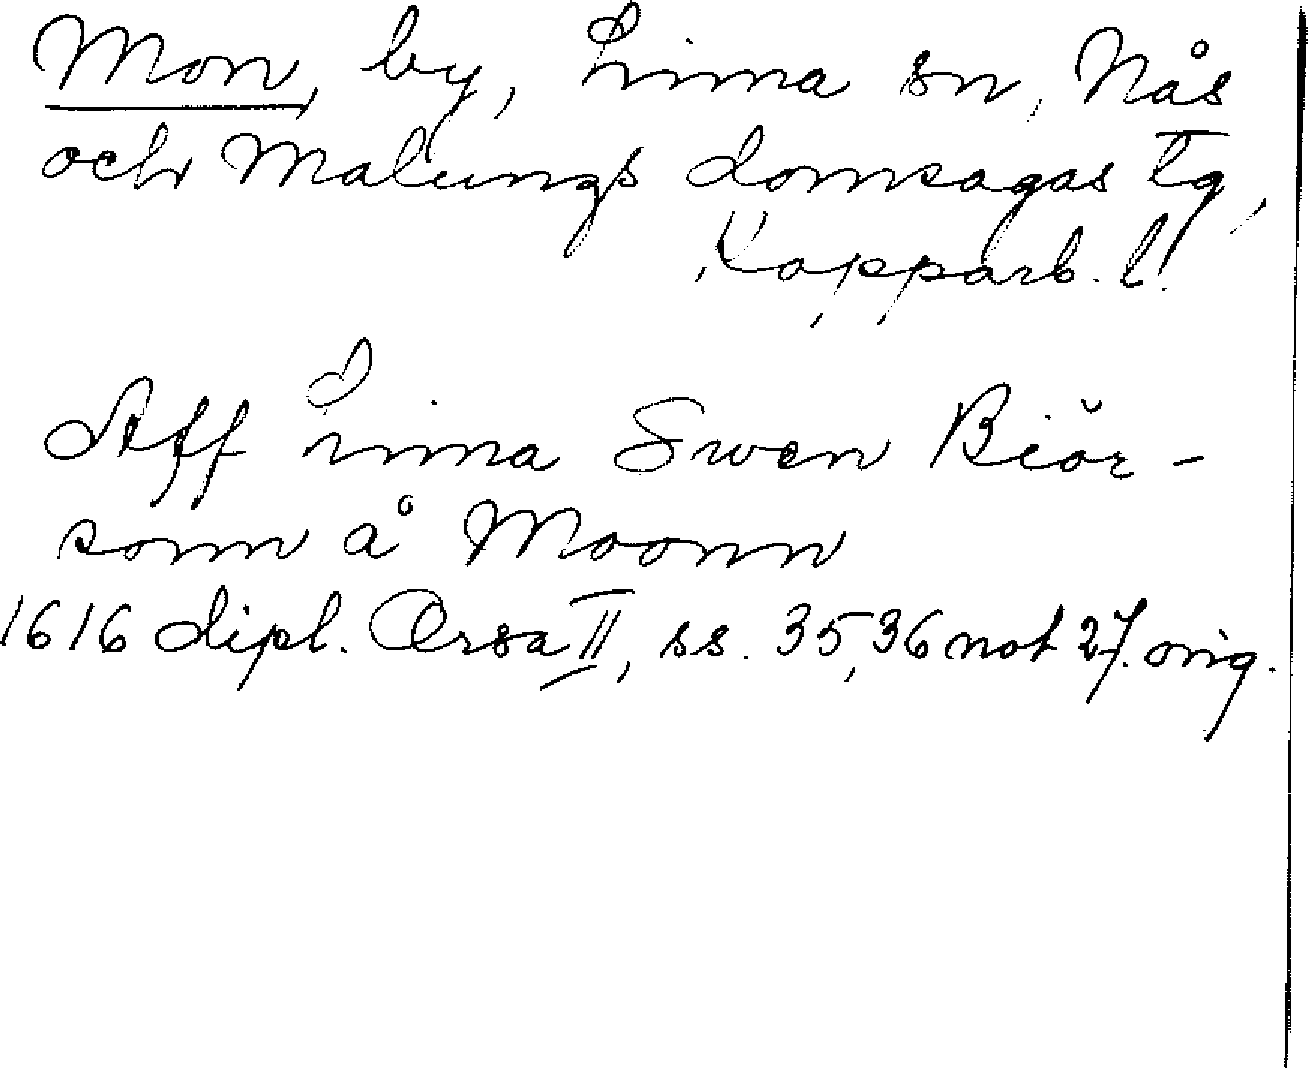 Mon, by, Lima sn, Nås
och Malungs domsagas tg,
Kopparb. l.
Aff Lima Swen Biör-
sonn å Moonn
1616 dipl. Orsa II, ss. 35,36 not 27. orig.